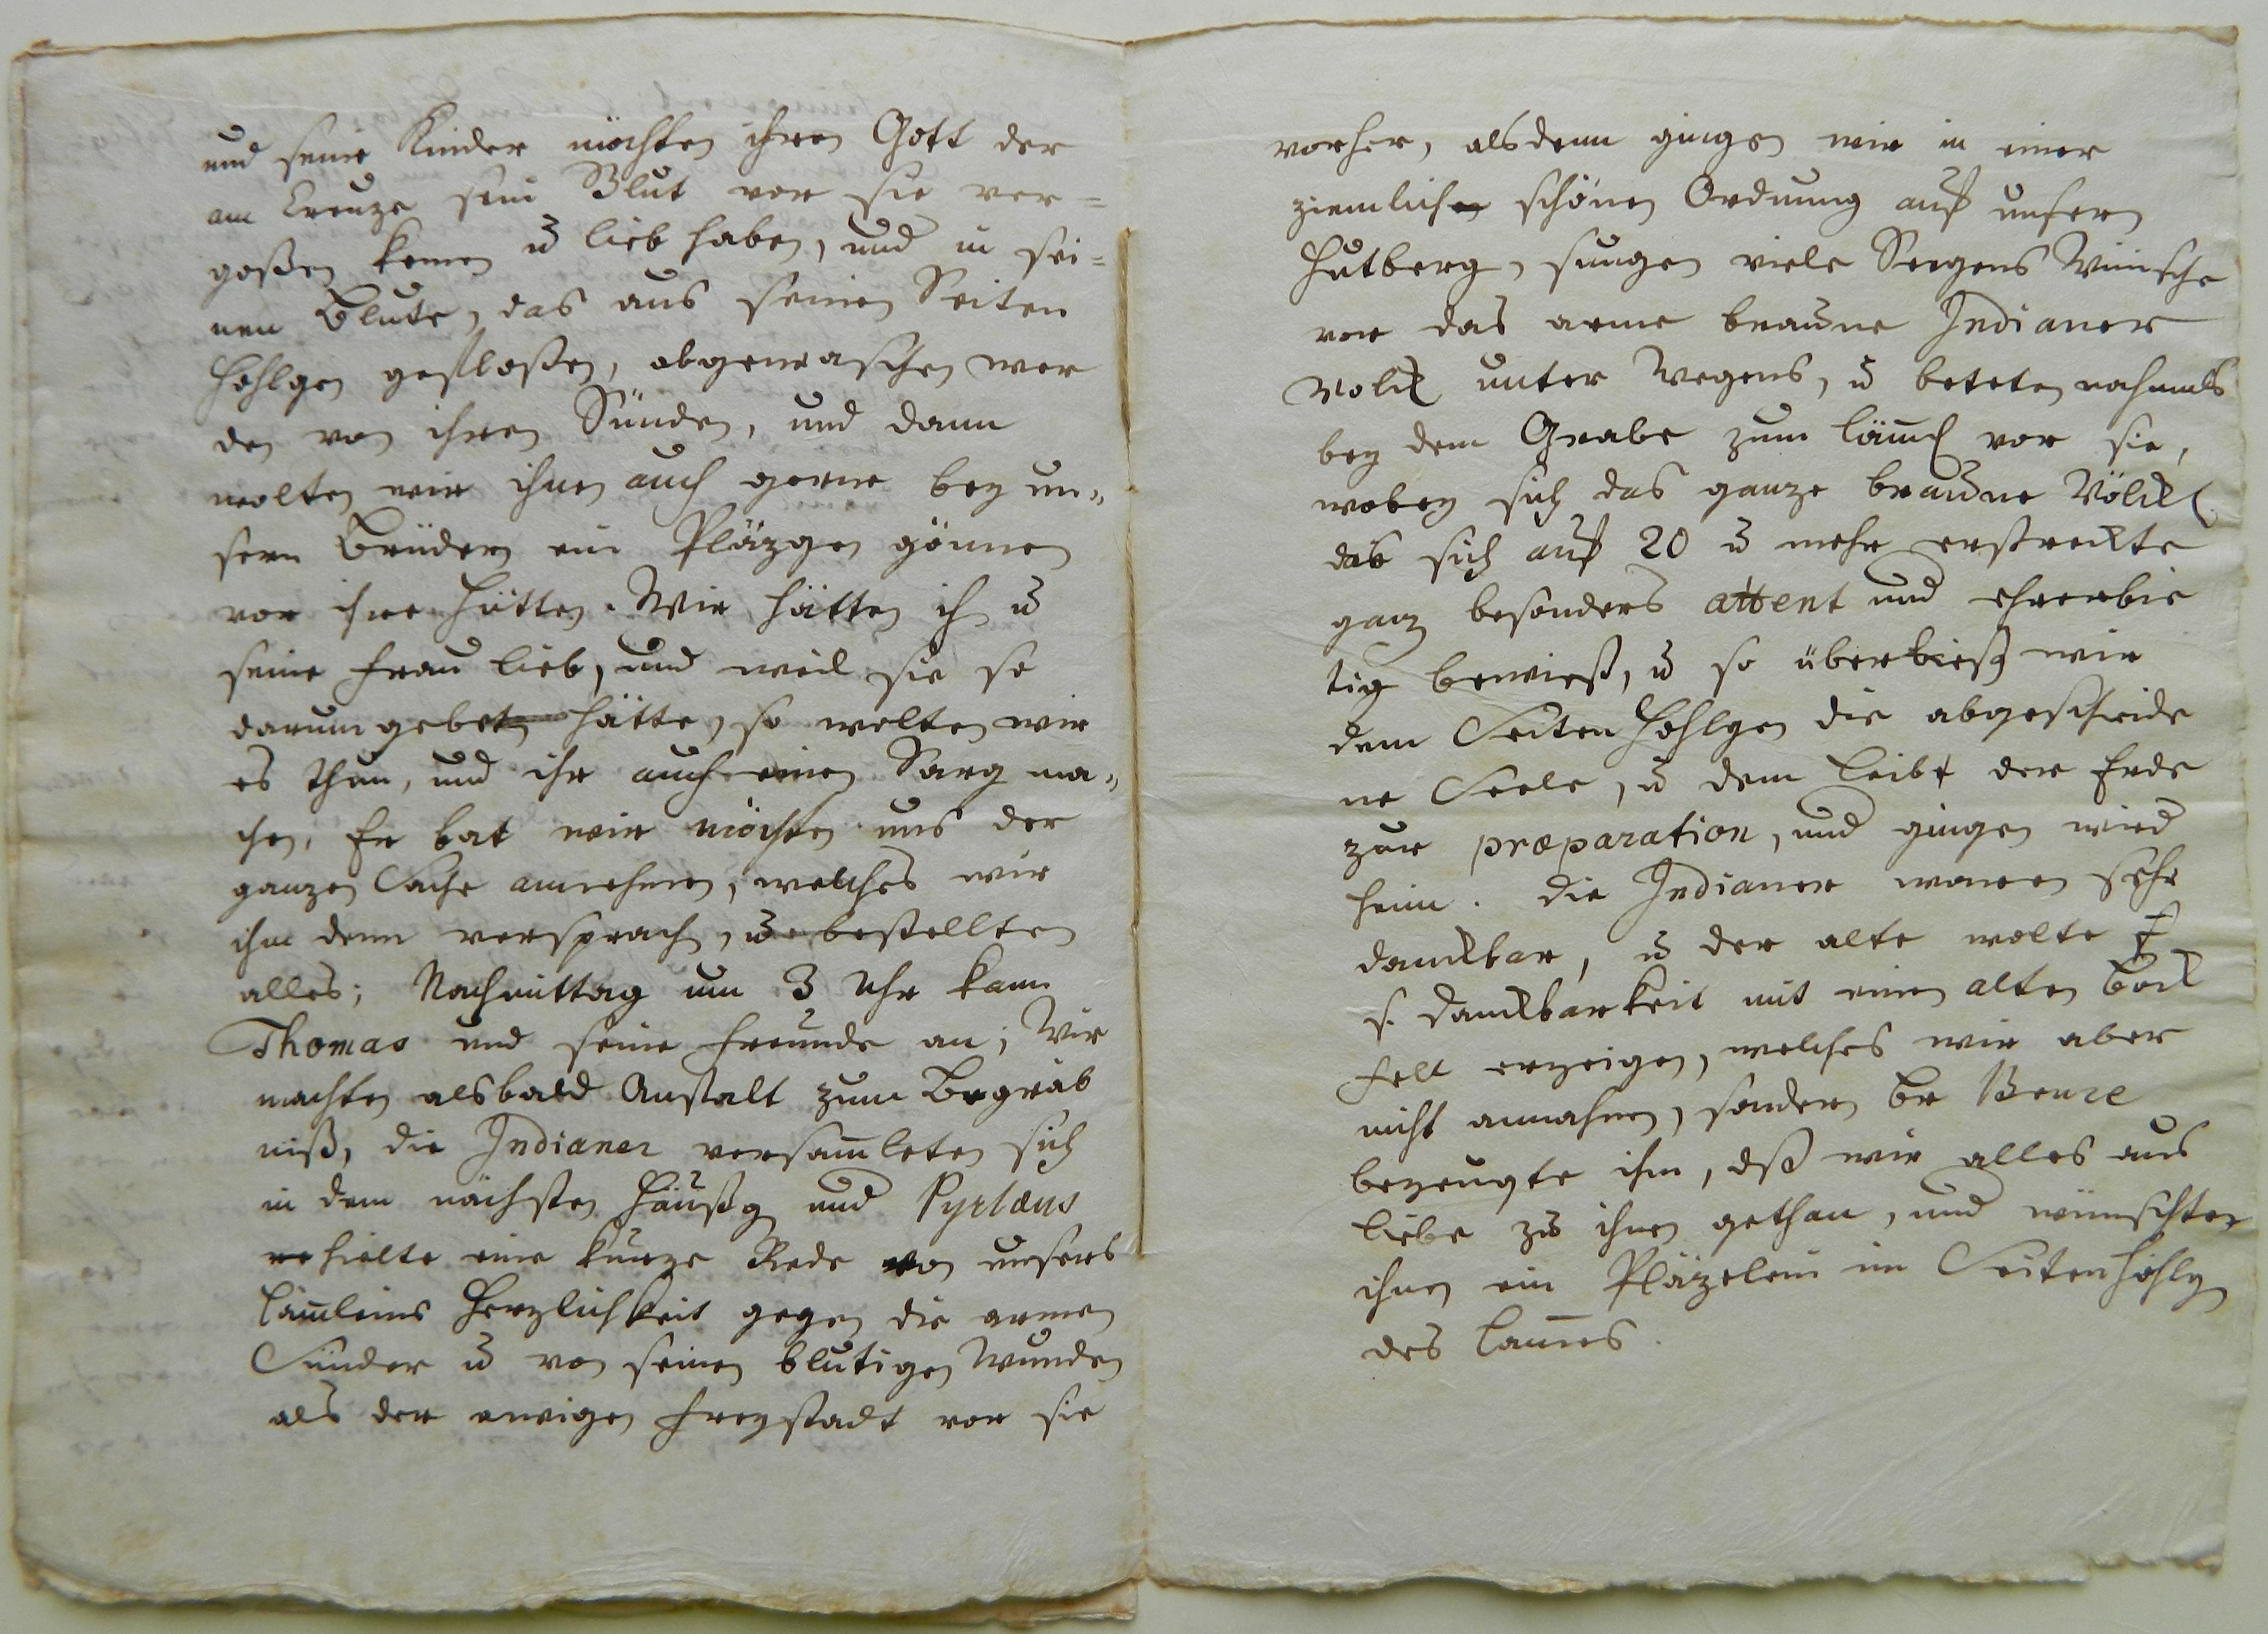 und seine Kinder möchten ihren Gott der
am Creuze sein Blut vor sie ver=
goßen kennen u lieb haben, und in sei=
nen Blute, das aus seinen Seiten
Höhlgen gefloßen, abgewaschen wer
den von ihren Sünden, und dann
wolten wir ihnen auch gerne bey un=
sern Brüdern ein Pläzgen gönnen
vor ihre Hütten. Wir hätten ihn u
seine Frau lieb, und weil sie so
darum gebeten hätte, so wolten wir
es thun, und ihr auch einen Sarg ma=
chen, Er bat wir möchten uns der
ganzen Sache annehmen, welches wir
ihm denn versprachen, u bestellten
alles; Nachmittag um 3 Uhr kam
Thomas und seine Freunde an; Wir
machten alsbald Anstalt zum Begräb
niß, die Indianer versam̄leten sich
in dem nächsten Häußgen und Pyrlæus
hielte eine kurze Rede von unsers
Läm̄leins Herzlichkeit gegen die armen
Sünder u von seinen blutigen Wunden
als der ewigen Freystadt vor sie
vorher, alsdenn gingen wir in einer
ziemlichen schönen Ordnung auf unsern
Hutberg, sungen viele Seegens Wünsche
vor das arme braune Indianer
Volck unter Wegens, u beteten nochmals
bey dem Grabe zum Läm̄l vor sie,
wobey sich das ganze braune Völckl
das sich auf 20 u mehr erstreckte
ganz besonders attent und ehrerbie
tig bewieß, u so überließen wir
dem Seiten Höhlgen die abgeschiede
ne Seele, u dem Leib der Erde
zur præparation, und gingen wied
heim. Die Indianer waren sehr
danckbar, u der alte wolte
s. Danckbarkeit mit einen alten Bock
Fell erzeigen, welches wir aber
nicht annahmen, sondern Br Bruce
bezeugte ihm, dß wir alles aus
Liebe zu ihnen gethan, und wünschten
ihnen ein Pläzelein im Seitenhöhlgen
des Lam̄es.